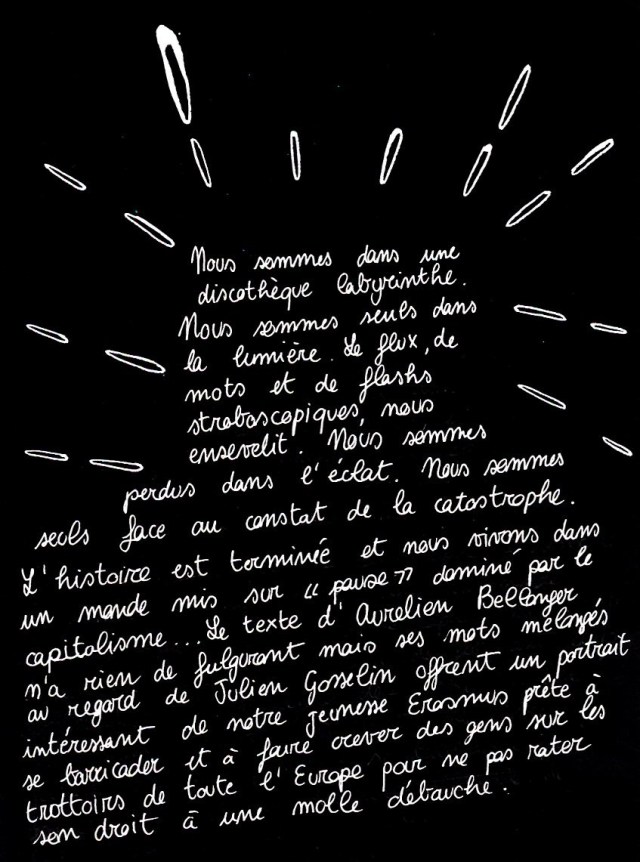 Nous sommes dans une
discothèque labyrinthe.
Nous sommes seuls dans
la lumière. Le flux, de
mots et de flashs
stroboscopiques, nous
ensevelit. Nous sommes
perdus dans l'éclat. Nous sommes
seuls face au constat de la catastrophe.
L'histoire est terminée et nous vivons dans
un monde mis sur "pause" dominé par le
capitalisme... Le texte d'Aurélien Bellanger
n'a rien de fulgurant mais ses mots mélangés
au regard de Julien Gosselin offrent un portrait
intéressant de notre jeunesse Erasmus prête à
se barricader et à faire crever des gens sur les
trottoirs de toute l'Europe pour ne pas rater
son droit à une molle débauche.